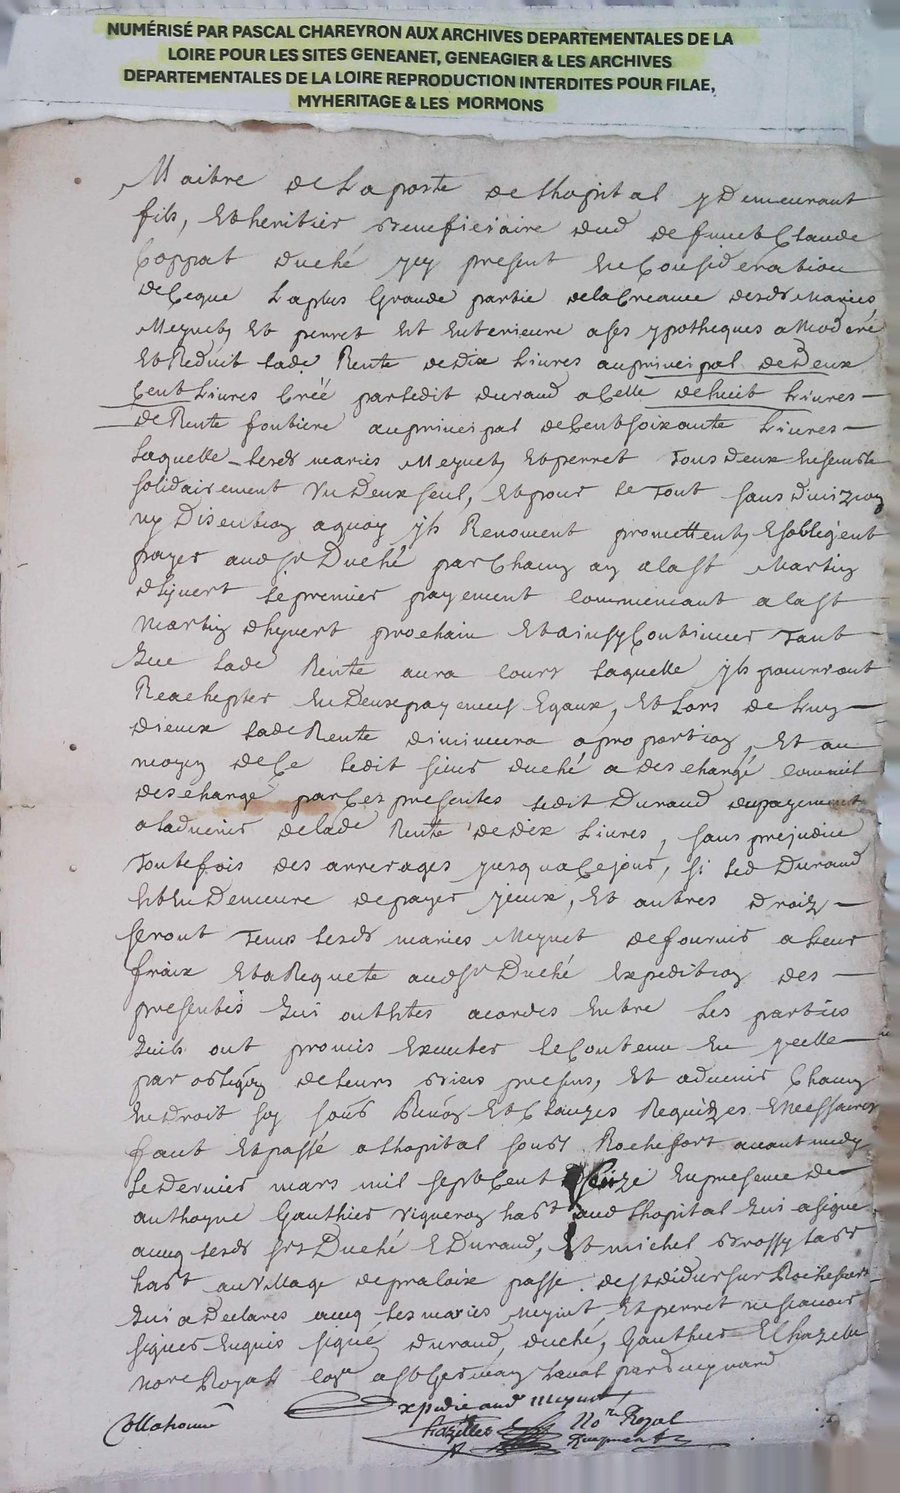 NUMÉRISÉ PAR PASCAL CHAREYRON AUX ARCHIVES DEPARTEMENTALES DE LA
LOIRE POUR LES SITES GENEANET, GENEAGIER & LES ARCHIVES
DEPARTEMENTALES DE LA LOIRE REPRODUCTION INTERDITES POUR FILAE,
MYHERITAGE & LES MORMONS
Maitre de La poste de lhopital y Demeurant
fils, Et heritier Beneficiaire dud defunct Claude
Coppat duché icy present En Consideration
de Ceque La plus Grande partie de la Creance desds Mariés
Meynet, Et perret Est Enterieure a ses ypotheques a Moderé
Et Reduit lade Rente de dix Livres au principal de Deux
Cent Livres Créé par ledit durand a Celle de huit Livres
de Rente fontiere au principal de Cent soixante Livres
Laquelle lesds mariés Meynet, Et perret Tous deux Ensemble
solidairement Un Deux seul, Et pour le Tout sans divizion
ny Discution a quoy ils Renoncent promettent, Et sobligent
payer aud sr Duché par Chacun an a la st Martin
dhyvert le premier payement commencant a la st
Martin dhyvert prochain Et ainsy Continuer Tant
Que lade Rente aura cours laquelle ils pourront
Reachepter En Deux payements Egaux, Et Lors de Lun
dieux lade Rente diminuera a proportion, Et au
moyen de Ce ledit sieur duché a deschargé comme il
descharge par Ces presentes ledit Durand du payement
a ladvenir de lade Rente de dix Livres, sans prejudice
Toutefois des arrerages jusqua Ce jour, si led Durand
Est En Demeure de payer iceux, Et autres droitz
seront Tenus lesds mariés Meynet de fournir a Leur
fraix Et a Requete aud sr Duché Expedition des
presentes Qui ont Estés acordés Entre Les parties
Quils ont promis Executer le Contenu En ycelle
par obligaon de leurs Biens presens, Et advenir Chacun
En droit soy sous Renon Et Clauzes Requizes Et Necessaires
fait Et passé a lhopital sous Rochefort avant midy
le dernier mars mil sept Cent seize En presence de
anthoyne Gauthier vigneron hant aud lhopital Qui a signé
avec lesds srs Duché Et Durand, Et michel Brossy
hant au Village de pralaix psse de st didier sur Rochefort
Qui a Declaré avec les mariés meynet, Et perret ne scavoir
signer Enquis signé, durand, duché, Gauthier Et Chazelle
nore Royal
Collationné
Expedié aud meynet
Chazelles No.re Royal